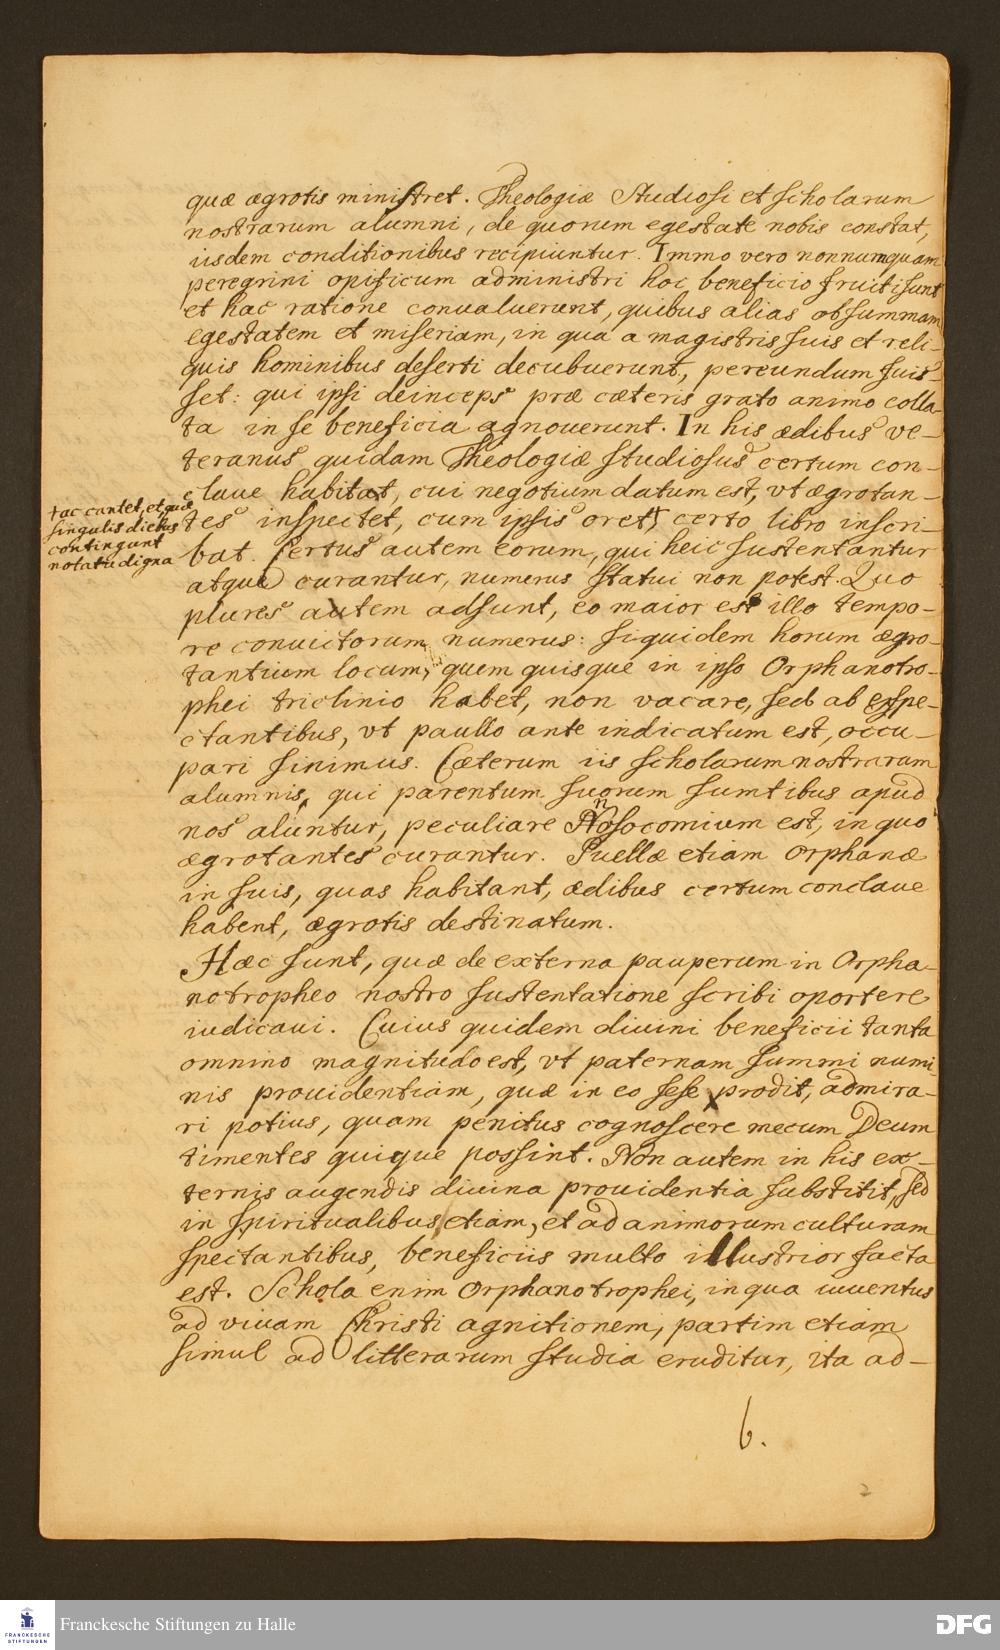 quæ ægrotis ministret. Theologiæ Studiosi et scholarum
nostrarum alumni, de quorum egestate nobis constat,
iisdem conditionibus recipiuntur. Immo vero nonnumquam
peregrini opificum administri hoc beneficio fruiti sunt
et hac ratione convaluerunt, quibus alias ob summam
egestatem et miseriam, in qua a magistris suis et reli-
quis hominibus deserti decubuerunt, pereundum fuis-
set: qui ipsi deinceps præ cæteris grato animo colla-
ta in se beneficia agnouerunt. In his ædibus ve-
teranus quidam Theologiæ studiosus certum con-
claue habitat, cui negotium datum est, vt ægrotan-
tes inspectet, cum ipsis oret, certo libro inscri-
tac cantet, et quæ
singulis diebus
contingunt
notatu digna
bat. Certus autem eorum, qui heic sustentantur
atque curantur, numerus statui non potest. Quo
plures autem adsunt, eo maior est illo tempo-
re conuictorum numerus: siquidem horum ægro-
tantium locum, quem quisque in ipso Orphanotro-
phei triclinio habet, non vacare, sed ab exspe-
ctantibus, vt paullo ante indicatum est, occu-
pari sinimus. Cæterum iis scholarum nostrarum
alumnis, qui parentum suorum sumtibus apud
nos aluntur, peculiare nosocomium est, in quo
ægrotantes curantur. Puellæ etiam orphanæ
in suis, quas habitant, ædibus certum conclaue
habent, ægrotis destinatum.
Hæc sunt, quæ de externa pauperum in Orpha-
notropheo nostro sustentatione scribi oportere
iudicaui. Cuius quidem diuini beneficii tanta
omnino magnitudo est, vt paternam summi numi-
nis prouidentiam, quæ in eo sese prodit, admira-
ri potius, quam penitus cognoscere mecum Deum
timentes quique possint. Non autem in his ex-
ternis augendis diuina prouidentia substitit, sed
in spiritualibus etiam, et ad animorum culturam
spectantibus, beneficiis multo illustrior facta
est. Schola enim Orphanotrophei, in qua iuuentus
ad viuam Christi agnitionem, partim etiam
simul ad litterarum studia eruditur, ita ad-
b.
2
FRANCKESCHE
STIFTUNGEN
Franckesche Stiftungen zu Halle
DFG